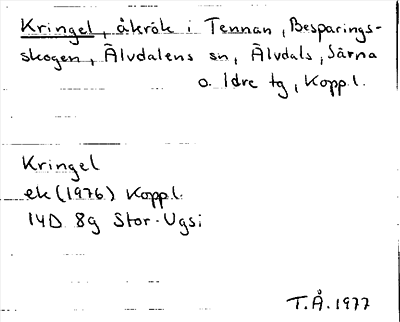 Kringel, åkrök i Tennan, Besparings-
skogen, Älvdalens sn, Älvdals, Särna
o. Idre tg, Koppl.
Kringel
ek (1976) Koppl.
14D 8g Stor-Ugsi
T.Å. 1977